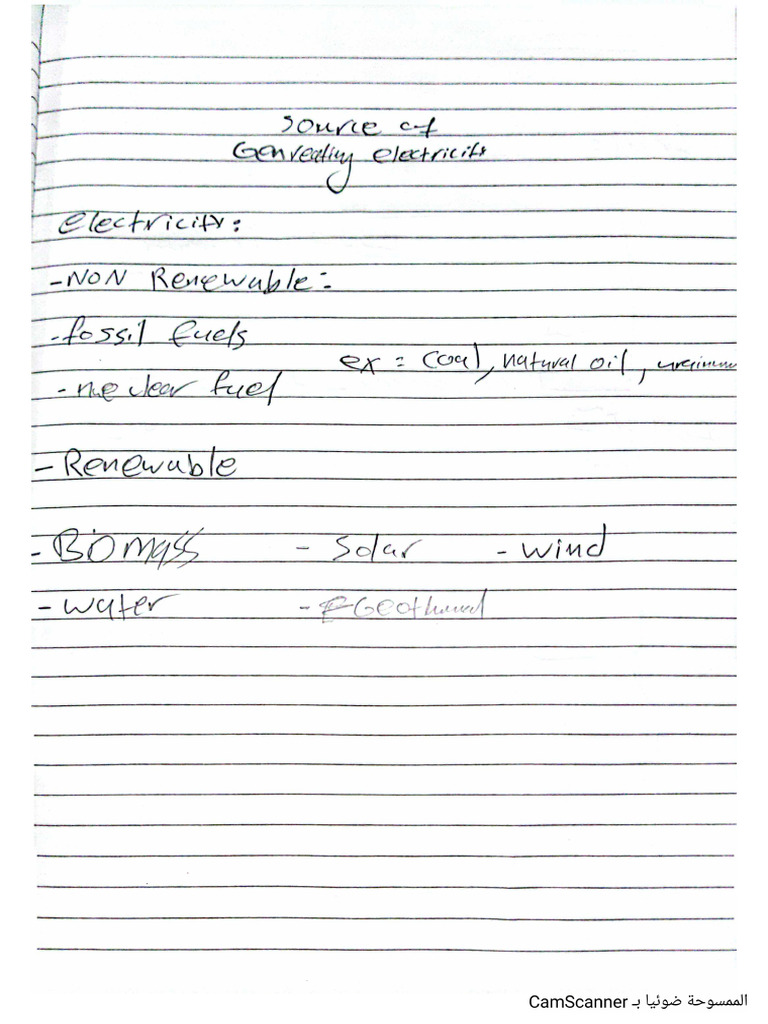 Source of
Genreating electricity
Electricity:
-NON Renewable:
-fossil fuels
ex = Coal, natural oil, uranium
-nuclear fuel
-Renewable
-Biomass - Solar - wind
-water - Geothermal
الممسوحة ضوئيا بـ CamScanner